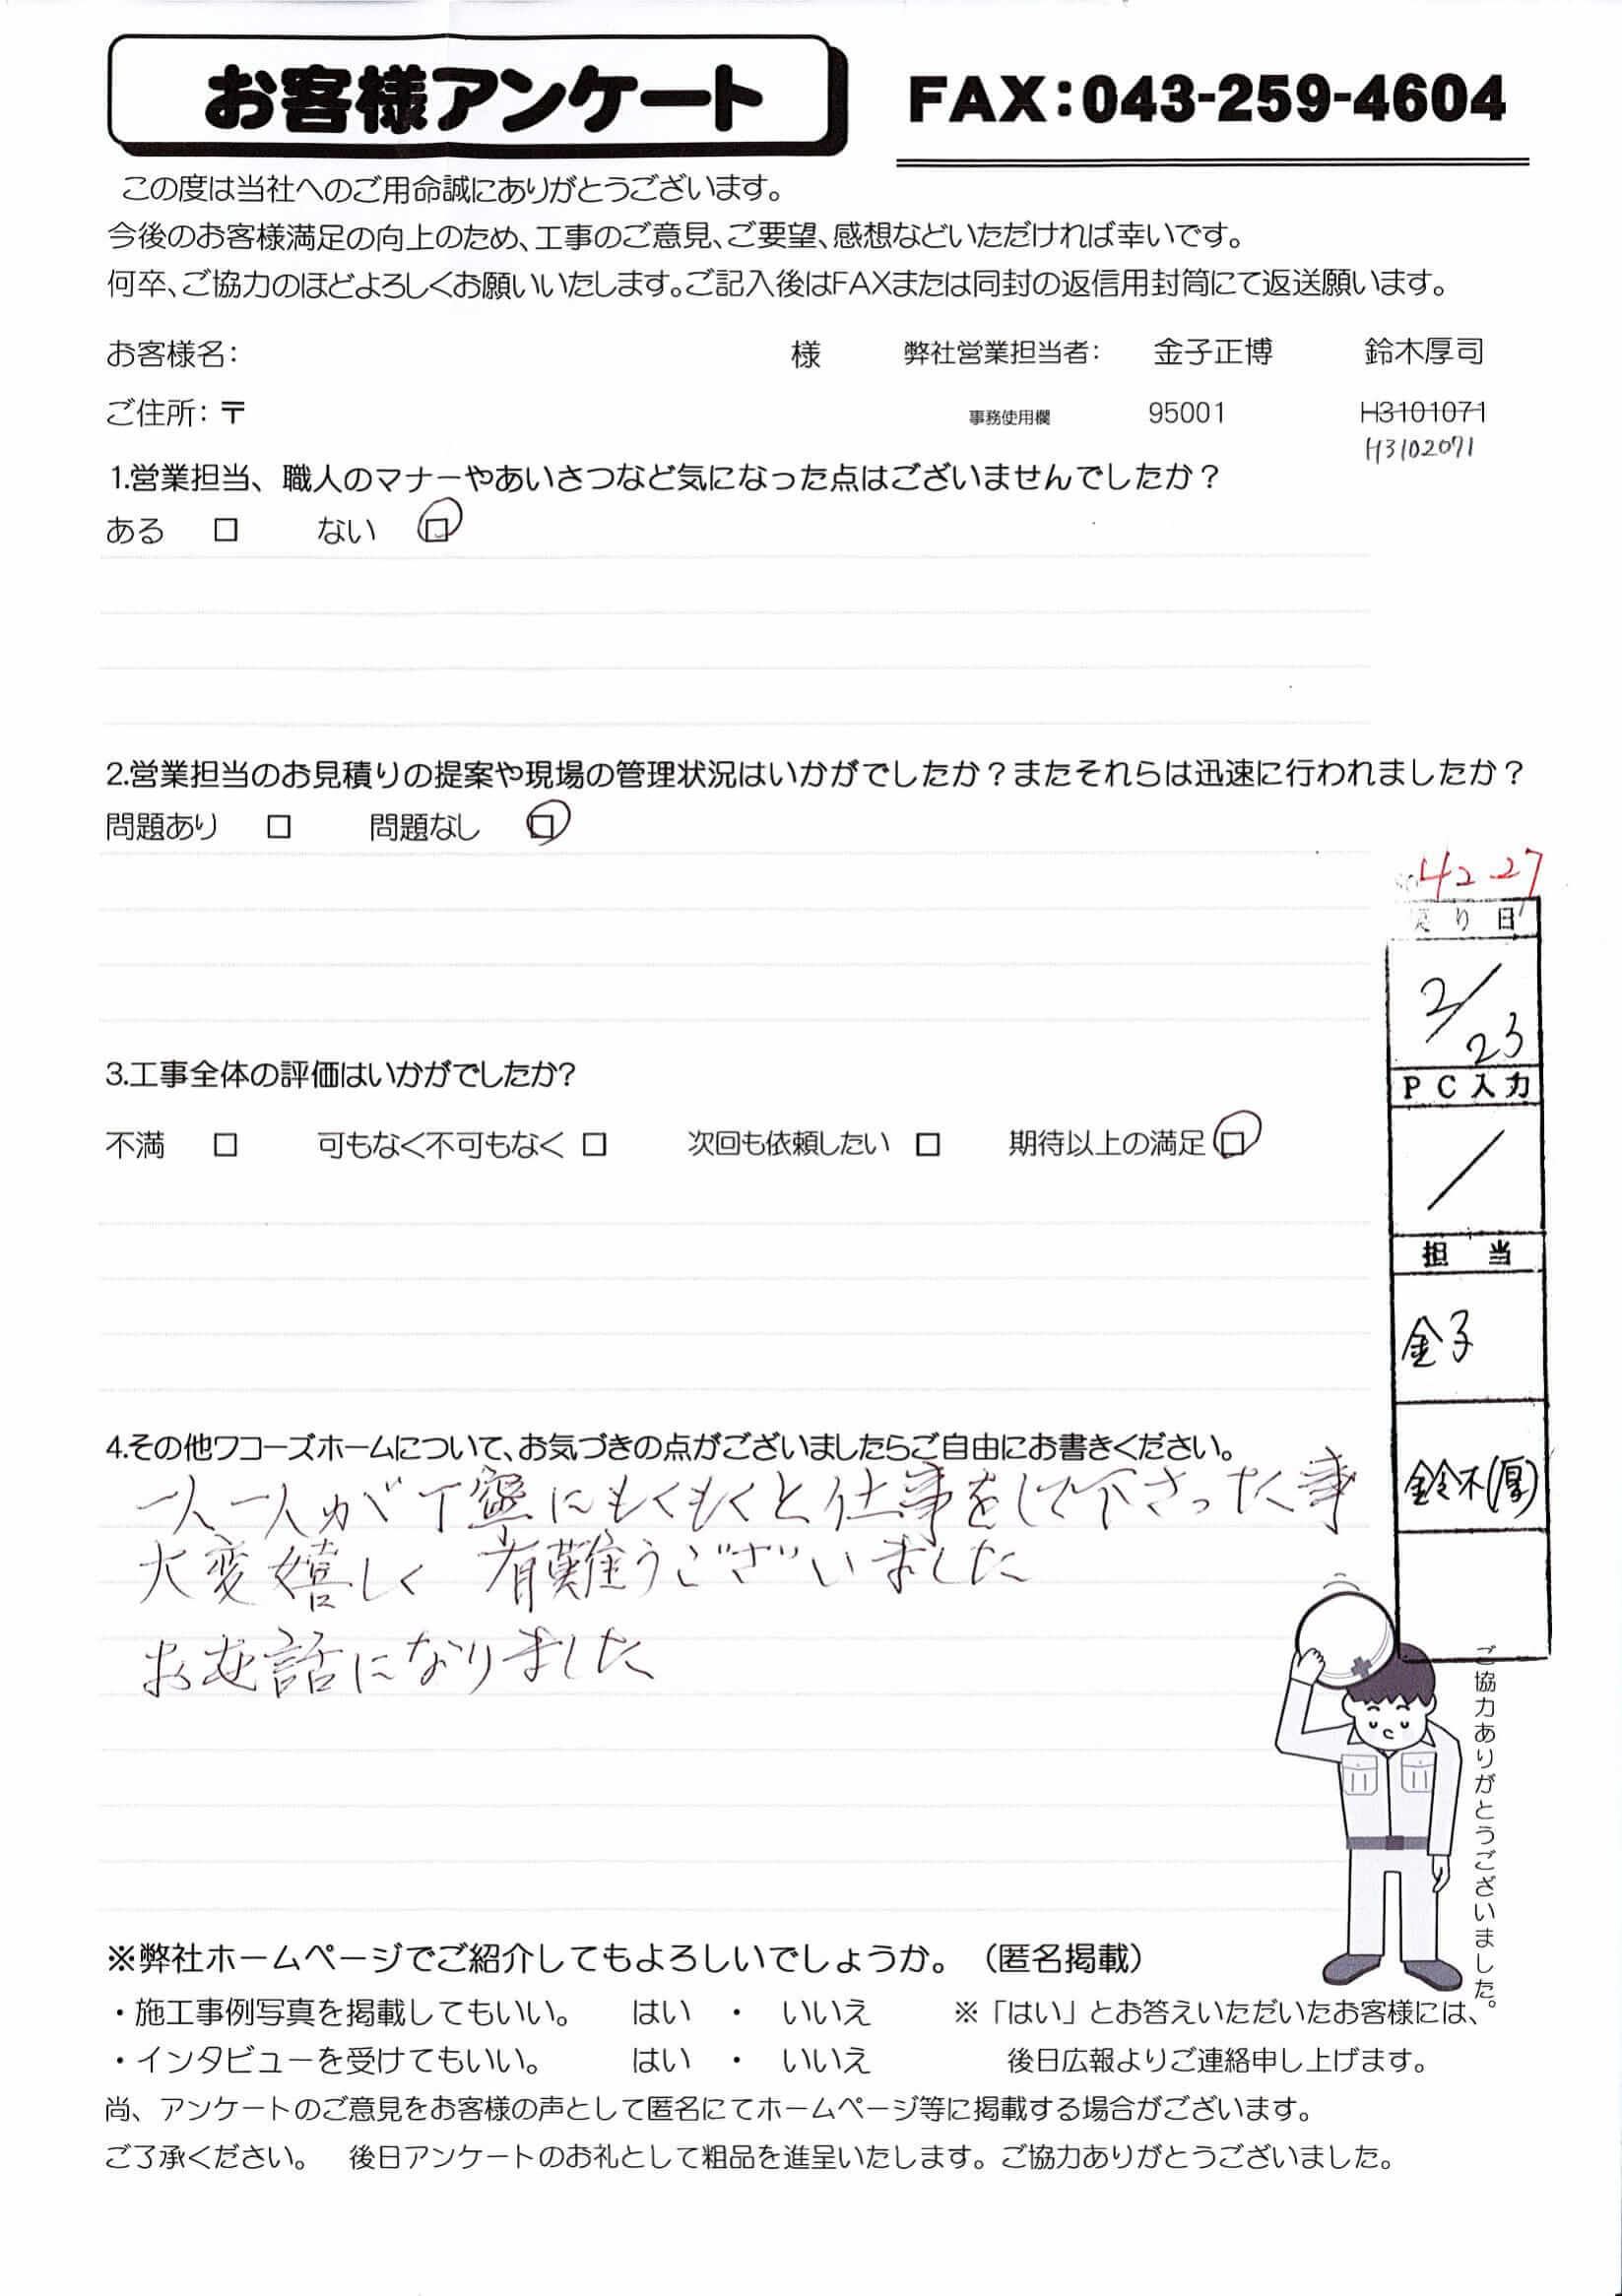 お客様アンケート
FAX:043-259-4604
この度は当社へのご用命誠にありがとうございます。
今後のお客様満足の向上のため、工事のご意見、ご要望、感想などいただければ幸いです。
何卒、ご協力のほどよろしくお願いいたします。ご記入後はFAXまたは同封の返信用封筒にて返送願います。
お客様名: 様 弊社営業担当者: 金子正博 鈴木厚司
ご住所:〒 事務使用欄 95001 H3101071
H3102071
1.営業担当、職人のマナーやあいさつなど気になった点はございませんでしたか？
ある □ ない □
2.営業担当のお見積りの提案や現場の管理状況はいかがでしたか？またそれらは迅速に行われましたか？
問題あり □ 問題なし □
4 2 27
戻り日
2/23
PC入力
/
担当
金子
鈴木(厚)
3.工事全体の評価はいかがでしたか?
不満 □ 可もなく不可もなく □ 次回も依頼したい □ 期待以上の満足 □
4.その他ワコーズホームについて、お気づきの点がございましたらご自由にお書きください。
一人一人が丁寧にもくもくと仕事をして下さった事
大変嬉しく 有難うございました
お世話になりました
ご協力ありがとうございました。
※弊社ホームページでご紹介してもよろしいでしょうか。（匿名掲載）
・施工事例写真を掲載してもいい。 はい ・ いいえ ※「はい」とお答えいただいたお客様には、
・インタビューを受けてもいい。 はい ・ いいえ 後日広報よりご連絡申し上げます。
尚、アンケートのご意見をお客様の声として匿名にてホームページ等に掲載する場合がございます。
ご了承ください。 後日アンケートのお礼として粗品を進呈いたします。ご協力ありがとうございました。